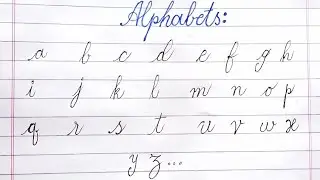 Alphabets:
a b c d e f g h
i j k l m n o p
q r s t u v w x
y z...